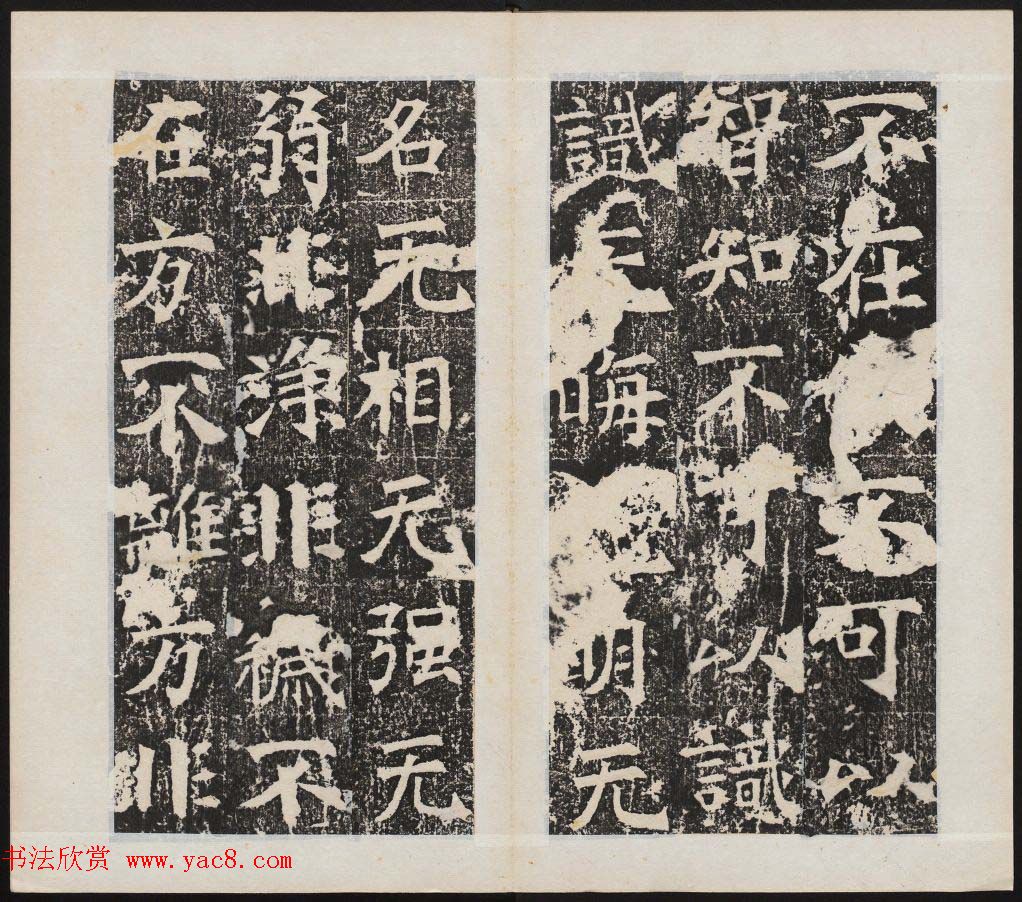 不在不可以
智知不可以識
識无晦无明无
名无相无强无
弱非淨非穢不
在方不離方非
书法欣赏 www.yac8.com